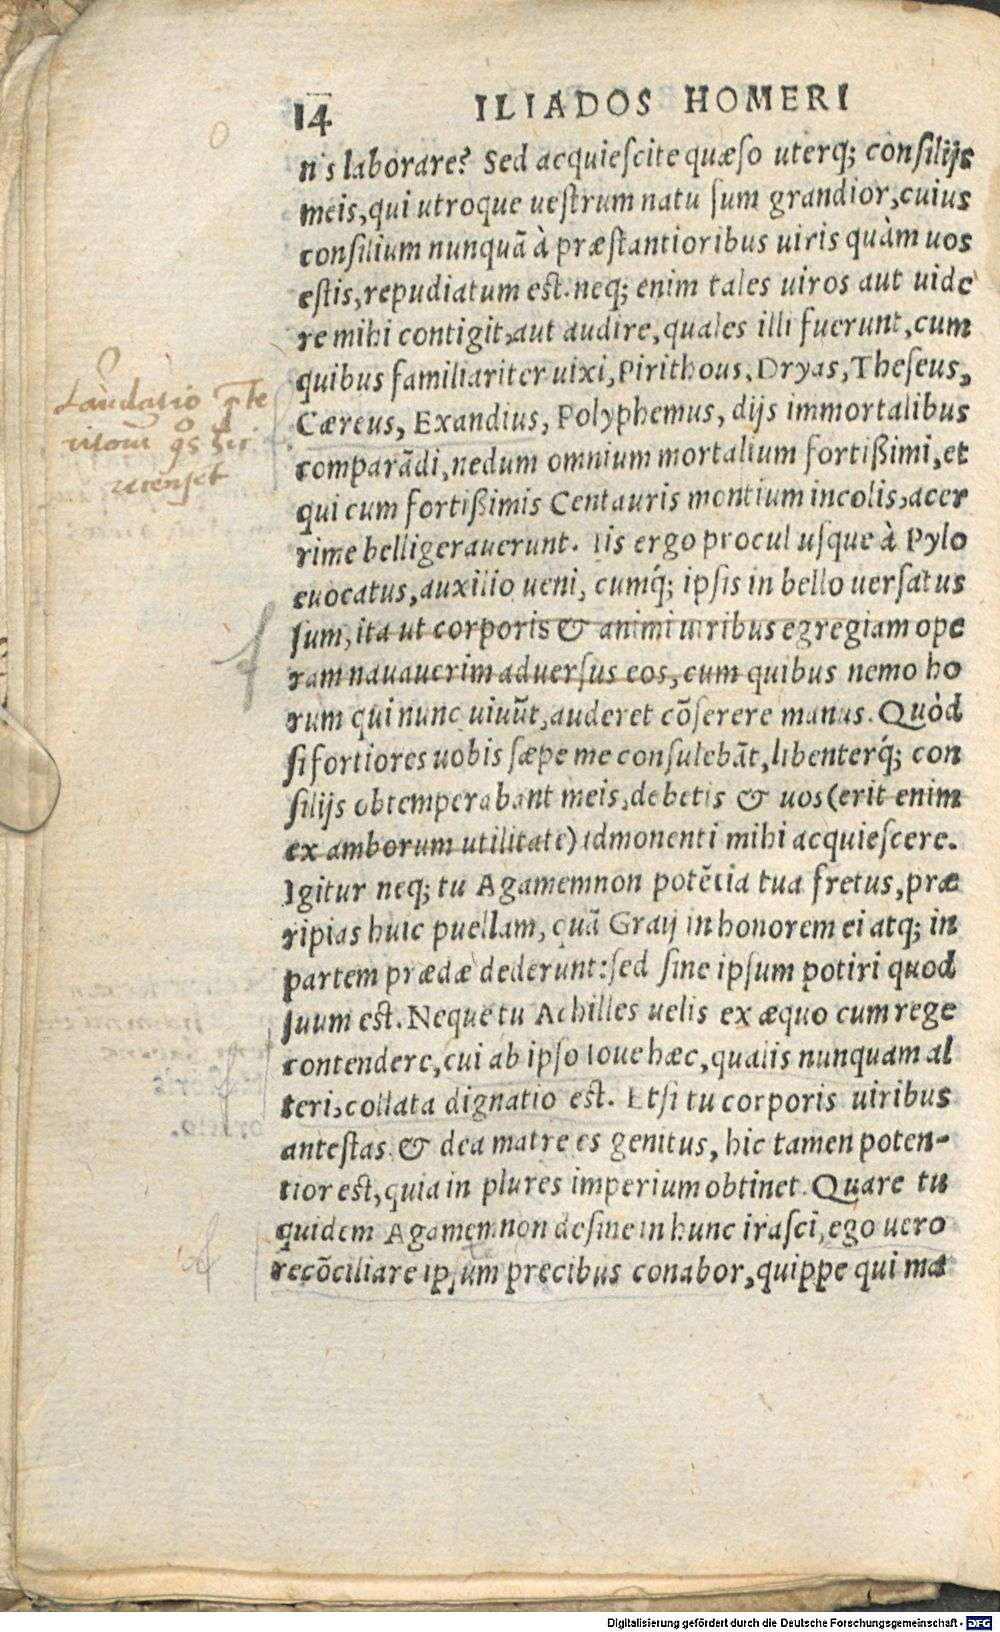 14 ILIADOS HOMERI
nis laborare? Sed acquiescite quæso uterq; consilijs
meis, qui utroque uestrum natu sum grandior, cuius
consilium nunquā à præstantioribus uiris quàm uos
estis, repudiatum est. neq; enim tales uiros aut uide
re mihi contigit, aut audire, quales illi fuerunt, cum
quibus familiariter uixi, Pirithous, Dryas, Theseus,
Cæreus, Exandius, Polyphemus, dijs immortalibus
comparādi, nedum omnium mortalium fortißimi, et
qui cum fortißimis Centauris montium incolis, acer
rime belligerauerunt. Iis ergo procul usque à Pylo
euocatus, auxilio ueni, cumq́; ipsis in bello uersatus
sum, ita ut corporis & animi uiribus egregiam ope
ram nauauerim aduersus eos, cum quibus nemo ho
rum qui nunc uiuūt, auderet cōserere manus. Quòd
si fortiores uobis sæpe me consulebāt, libenterq́; con
silijs obtemperabant meis, debetis & uos (erit enim
ex amborum utilitate) admonenti mihi acquiescere.
Igitur neq; tu Agamemnon potētia tua fretus, præ
ripias huic puellam, quā Graij in honorem ei atq; in
partem prædæ dederunt: sed sine ipsum potiri quod
suum est. Neque tu Achilles uelis ex æquo cum rege
contendere, cui ab ipso Ioue hæc, qualis nunquam al
teri, collata dignatio est. Etsi tu corporis uiribus
antestas & dea matre es genitus, hic tamen poten-
tior est, quia in plures imperium obtinet. Quare tu
quidem Agamemnon desine in hunc irasci, ego uero
recōciliare ipsum precibus conabor, quippe qui ma
Laudatio
recenset
Digitalisierung gefördert durch die Deutsche Forschungsgemeinschaft - DFG